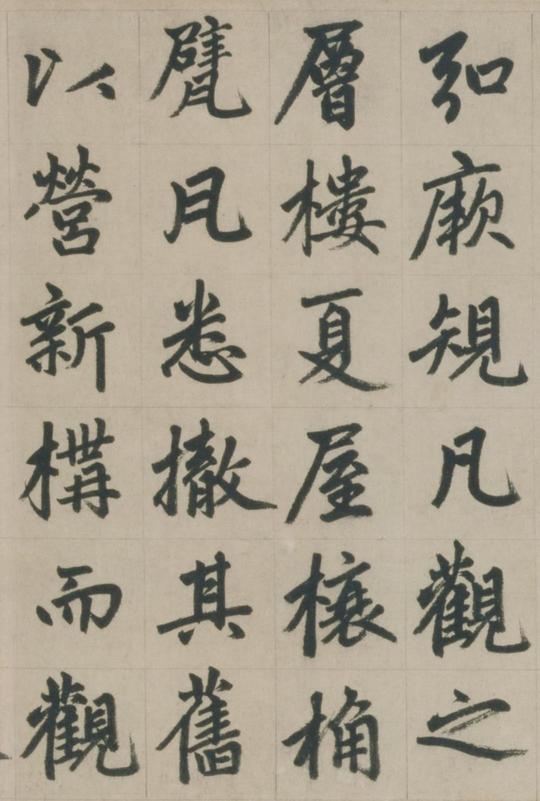 弘厥規凡觀之
層樓夏屋榱桷
甓瓦悉撤其舊
以營新構而觀